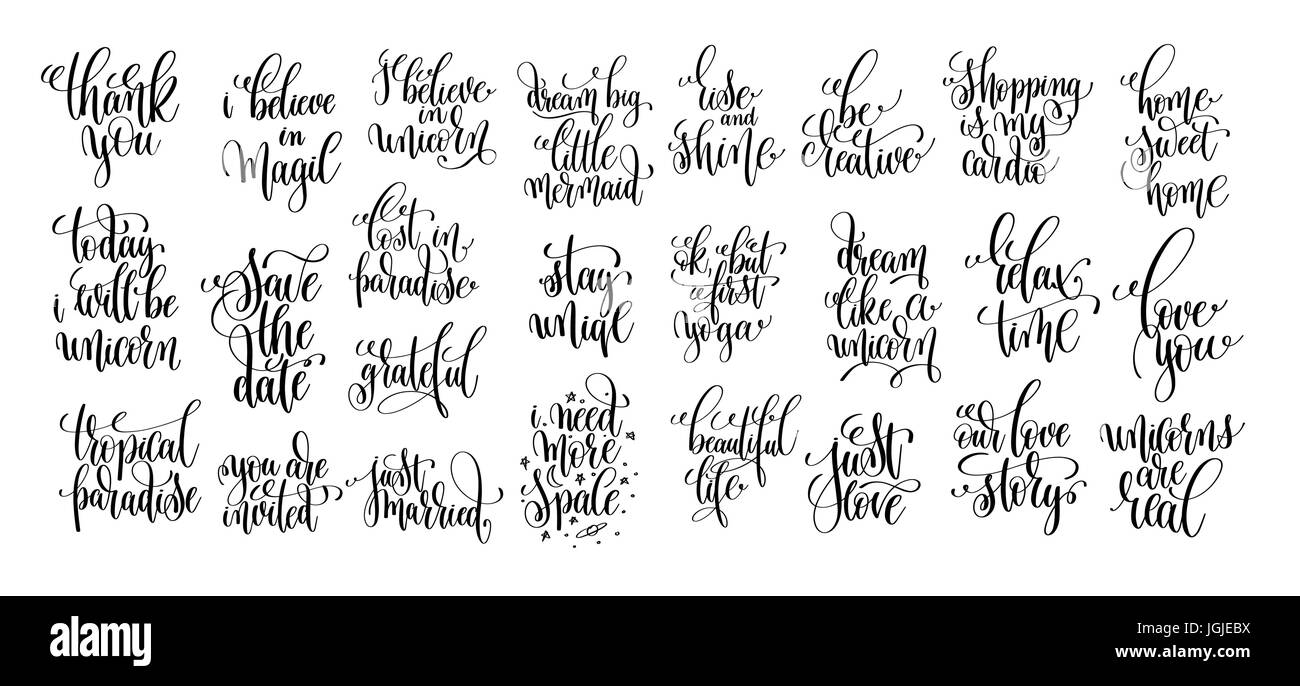 thank
you
i believe
in
Magil
I believe
in
unicorn
dream big
little
mermaid
rise
and
shine
be
creative
shopping
is my
cardio
home
sweet
home
today
i will be
unicorn
save
the
date
lost in
paradise
grateful
stay
uniql
ok, but
first
yoga
dream
like a
unicorn
relax
time
love
you
tropical
paradise
you are
invited
just
married
i need
more
spale
beautiful
life
just
love
our love
story
unicorns
are
real
alamy stock photo
JGJEBX
www.alamy.com